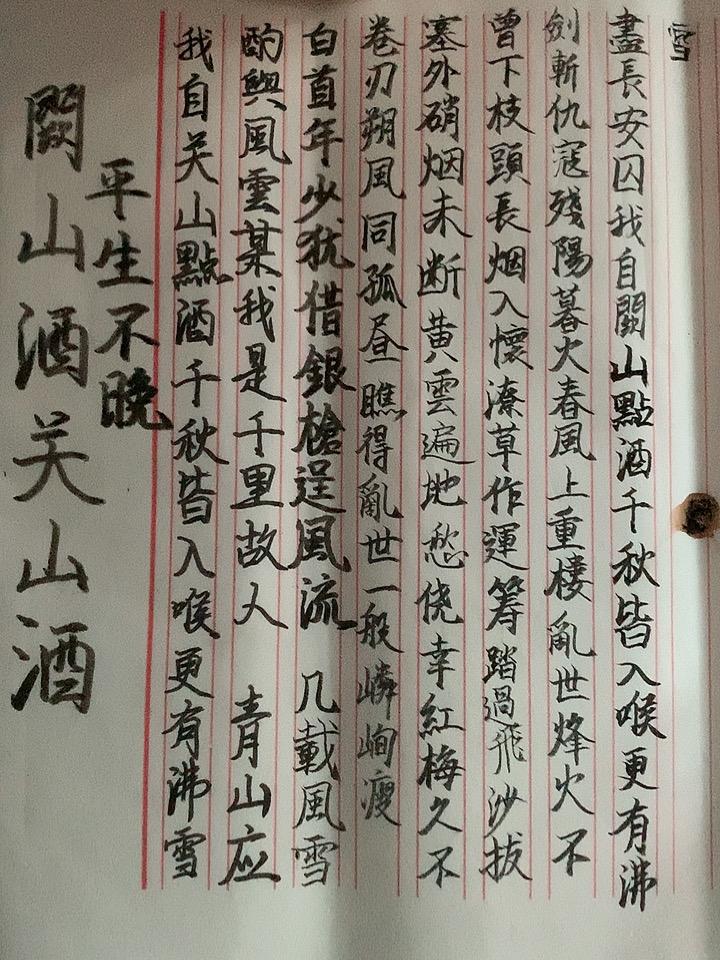 關山酒关山酒
平生不晚
我自关山點酒千秋皆入喉更有沸雪
酌與風雲某我是千里故人 青山应
白首年少犹借銀槍逞風流 几載風雪
卷刃朔風同孤昼瞧得亂世一般嶙峋瘦
塞外硝烟未断黄雲遍地愁侥幸紅梅久不
曾下枝頭長烟入懷潦草作運籌踏過飛沙拔
劍斬仇寇殘陽暮火春風上重樓亂世烽火不
盡長安囚我自關山點酒千秋皆入喉更有沸
雪